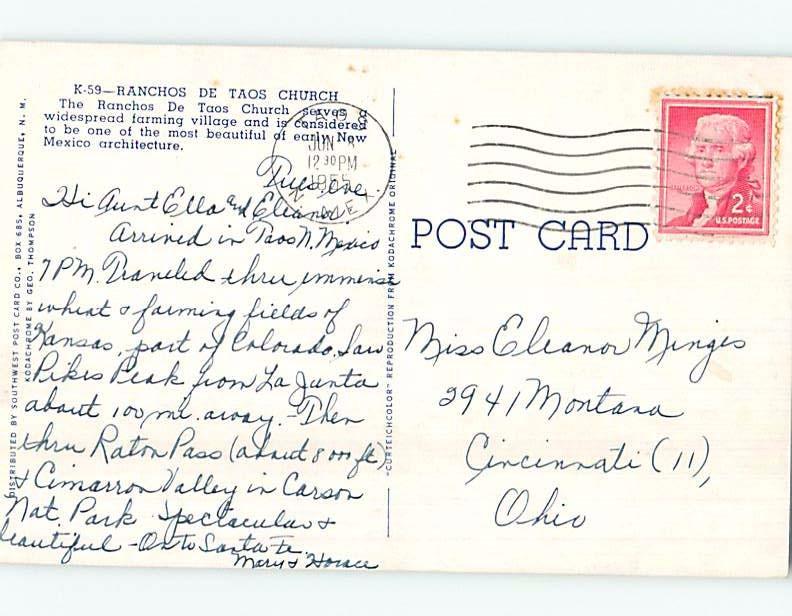 K-59—RANCHOS DE TAOS CHURCH
The Ranchos De Taos Church serves
widespread farming village and is considered
to be one of the most beautiful of early New
Mexico architecture.
DISTRIBUTED BY SOUTHWEST POST CARD CO., BOX 685, ALBUQUERQUE, N. M.
KODACHROME BY GEO. THOMPSON
JUN
12 30 PM
1955
N. MEX.
Tues. eve.
Hi Aunt Ella and Eleanor.
Arrived in Taos N. Mexico
7 P.M. Traveled thru immense
wheat & farming fields of
Kansas, part of Colorado. Saw
Pikes Peak from La Junta
about 100 mi. away. - Then
thru Raton Pass (about 8000 ft)
& Cimarron Valley in Carson
Nat. Park Spectacular &
beautiful - On to Santa Fe.
Mary & Horace
"CURTEICHCOLOR" REPRODUCTION FROM KODACHROME ORIGINAL
POST CARD
JEFFERSON
2¢
U.S. POSTAGE
Miss Eleanor Minges
2941 Montana
Cincinnati (11),
Ohio